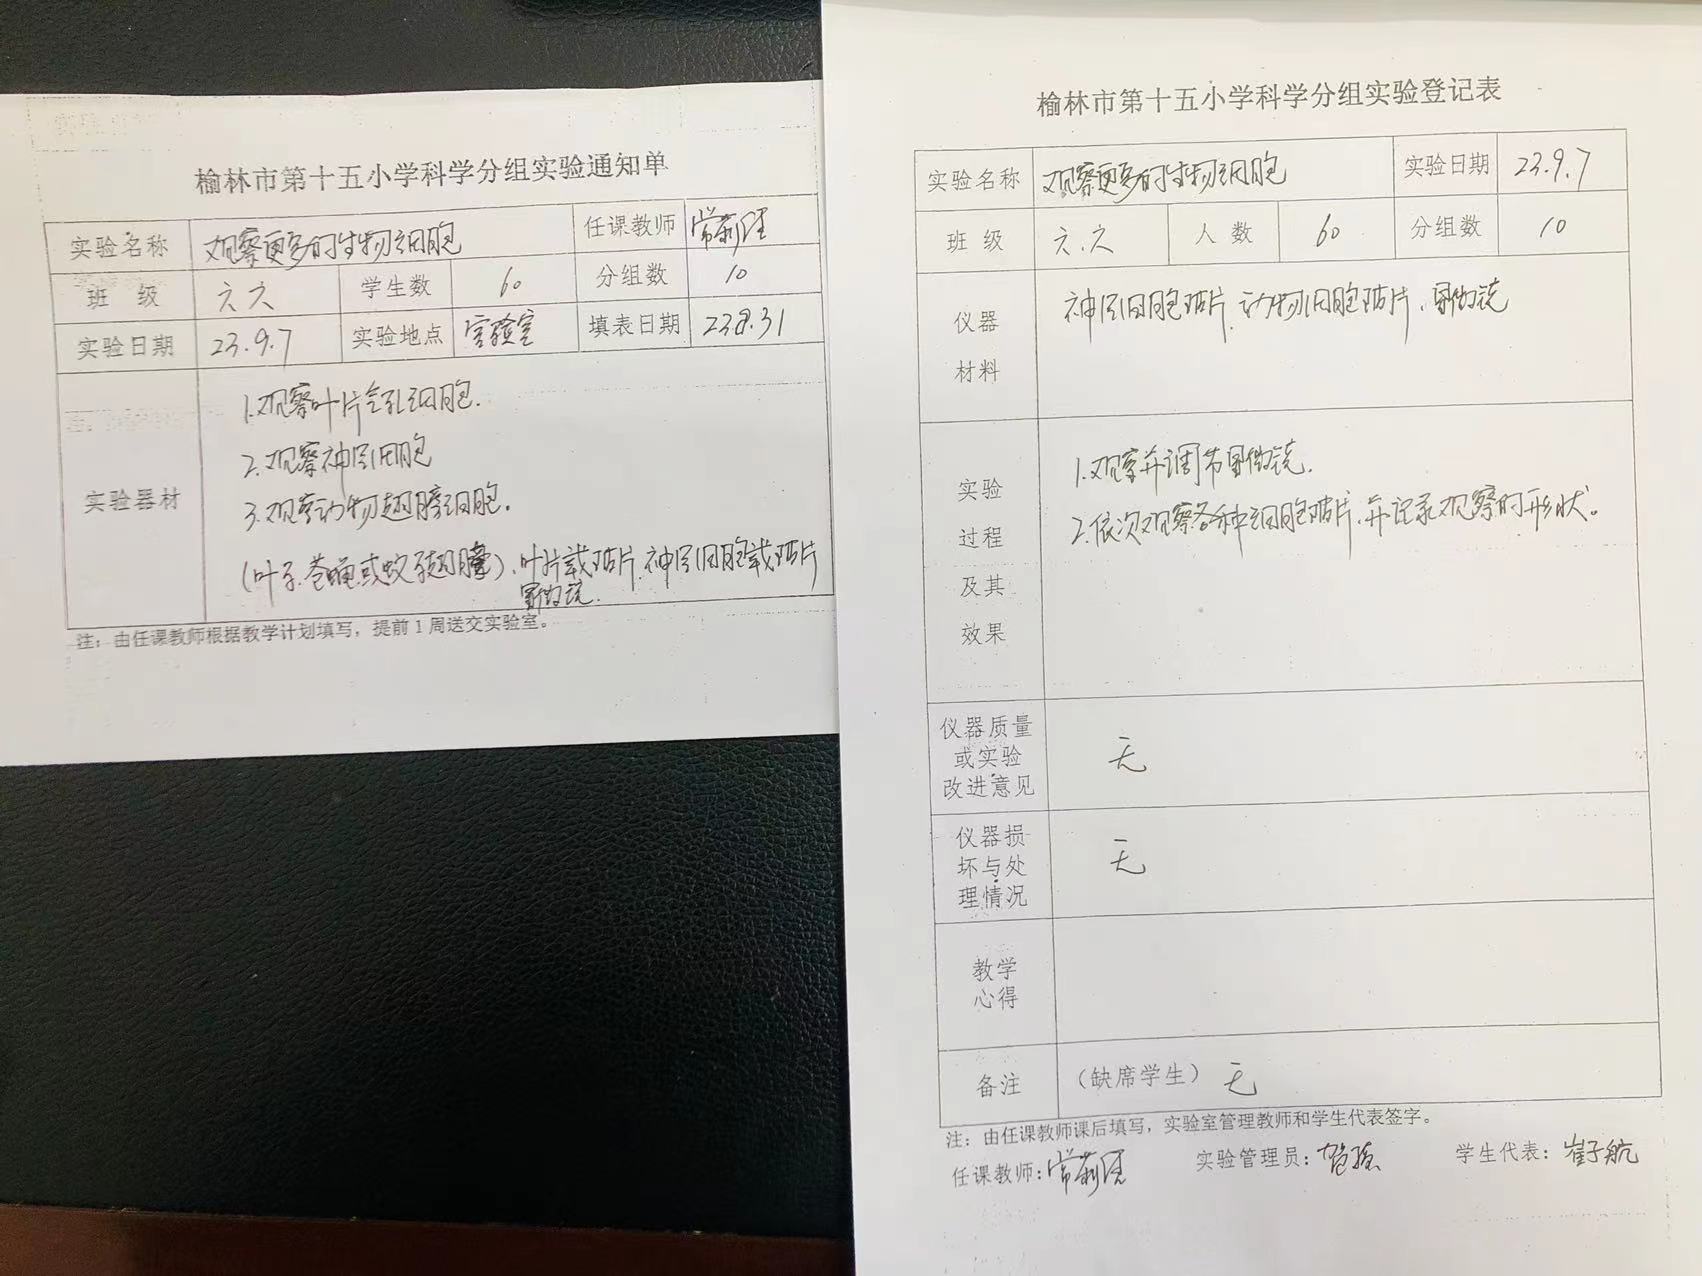 榆林市第十五小学科学分组实验通知单
实验名称 观察更多的生物细胞 任课教师
班 级 六六 学生数 60 分组数 10
实验日期 23.9.7 实验地点 实验室 填表日期 23.8.31
实验器材
1.观察叶片气孔细胞.
2.观察神经细胞
3.观察动物翅膀细胞.
(叶子.苍蝇或蚊子翅膀).叶片载玻片.神经细胞载玻片
显微镜.
注：由任课教师根据教学计划填写，提前1周送交实验室。
榆林市第十五小学科学分组实验登记表
实验名称 观察更多的生物细胞 实验日期 23.9.7
班 级 六.六 人 数 60 分组数 10
仪器
材料
神经细胞玻片.动物细胞玻片.显微镜
实验
过程
及其
效果
1.观察并调节显微镜.
2.依次观察各种细胞玻片.并记录观察的形状。
仪器质量
或实验
改进意见
无
仪器损
坏与处
理情况
无
教学
心得
备注 （缺席学生） 无
注：由任课教师课后填写，实验室管理教师和学生代表签字。
任课教师: 实验管理员: 学生代表: 崔子航